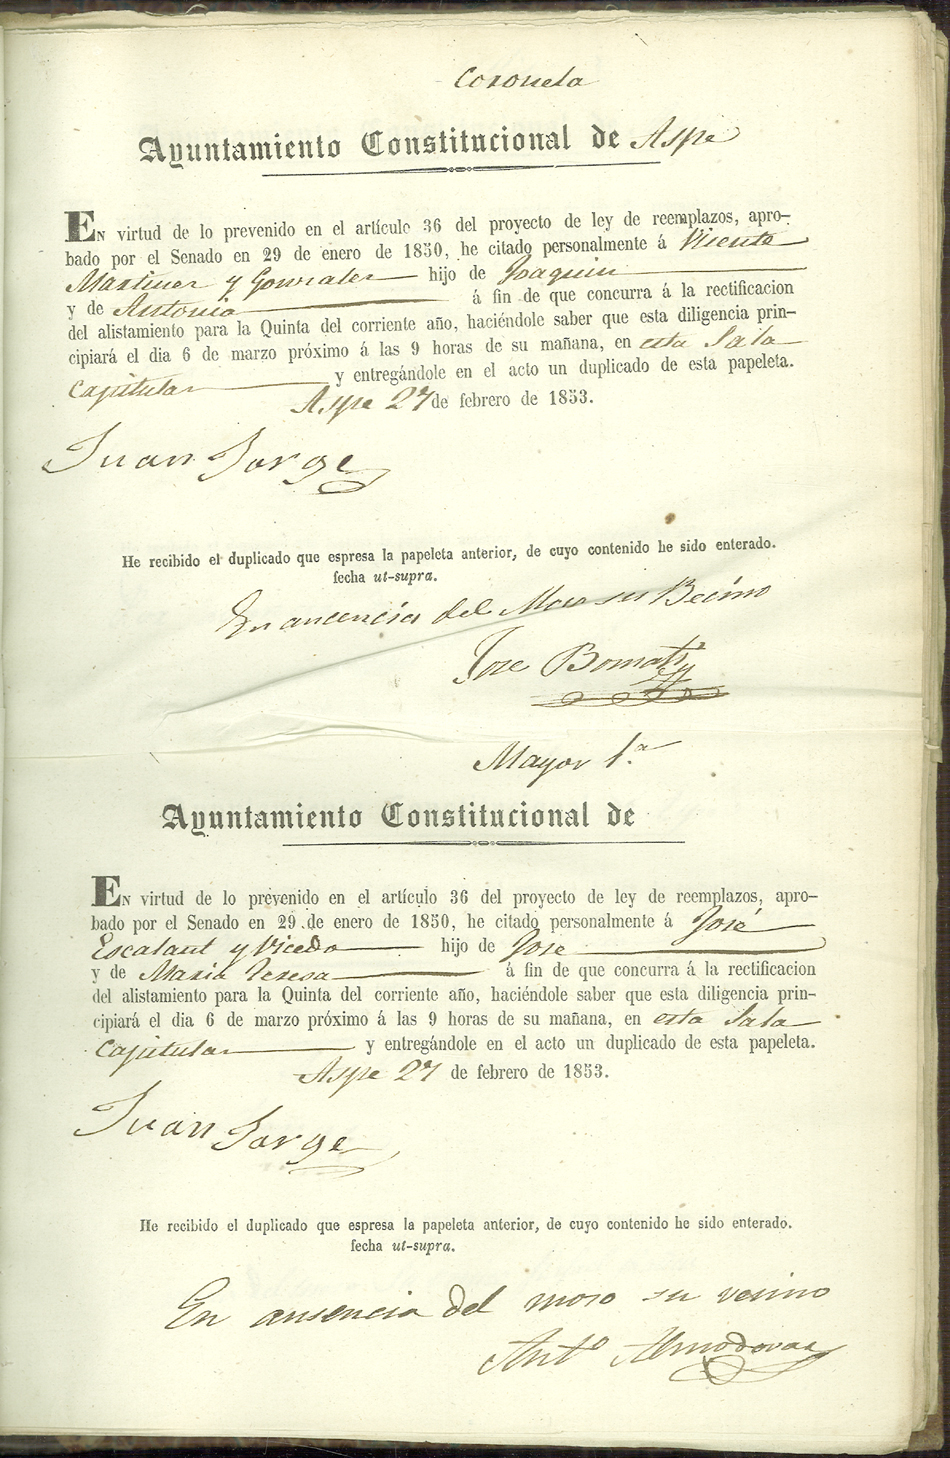 Coronela
Ayuntamiento Constitucional de Aspe
EN virtud de lo prevenido en el artículo 36 del proyecto de ley de reemplazos, apro-
bado por el Senado en 29 de enero de 1850, he citado personalmente á Vicente
Martinez y Gonzalez hijo de Joaquin
y de Antonia á fin de que concurra á la rectificacion
del alistamiento para la Quinta del corriente año, haciéndole saber que esta diligencia prin-
cipiará el dia 6 de marzo próximo á las 9 horas de su mañana, en esta Sala
Capitular y entregándole en el acto un duplicado de esta papeleta.
Aspe 27 de febrero de 1853.
Juan Jorge
He recibido el duplicado que espresa la papeleta anterior, de cuyo contenido he sido enterado.
fecha ut-supra.
En aucencia del Moso su Becino
Jose Bomati
Mayor 1.ª
Ayuntamiento Constitucional de
EN virtud de lo prevenido en el artículo 36 del proyecto de ley de reemplazos, apro-
bado por el Senado en 29 de enero de 1850, he citado personalmente á José
Escalant y Vicedo hijo de Jose
y de Maria Teresa á fin de que concurra á la rectificacion
del alistamiento para la Quinta del corriente año, haciéndole saber que esta diligencia prin-
cipiará el dia 6 de marzo próximo á las 9 horas de su mañana, en esta Sala
Capitular y entregándole en el acto un duplicado de esta papeleta.
Aspe 27 de febrero de 1853.
Juan Jorge
He recibido el duplicado que espresa la papeleta anterior, de cuyo contenido he sido enterado.
fecha ut-supra.
En ausencia del moso su vesino
Antº Almodovar